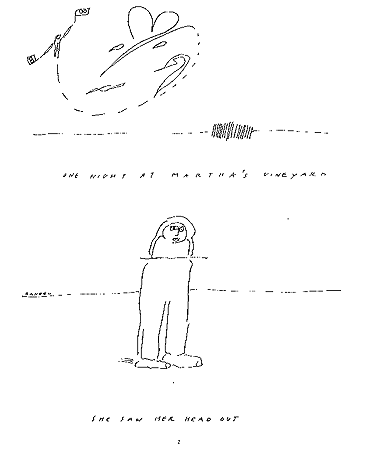 ONE NIGHT AT MARTHA'S VINEYARD
SHE SAW HER HEAD OUT
2